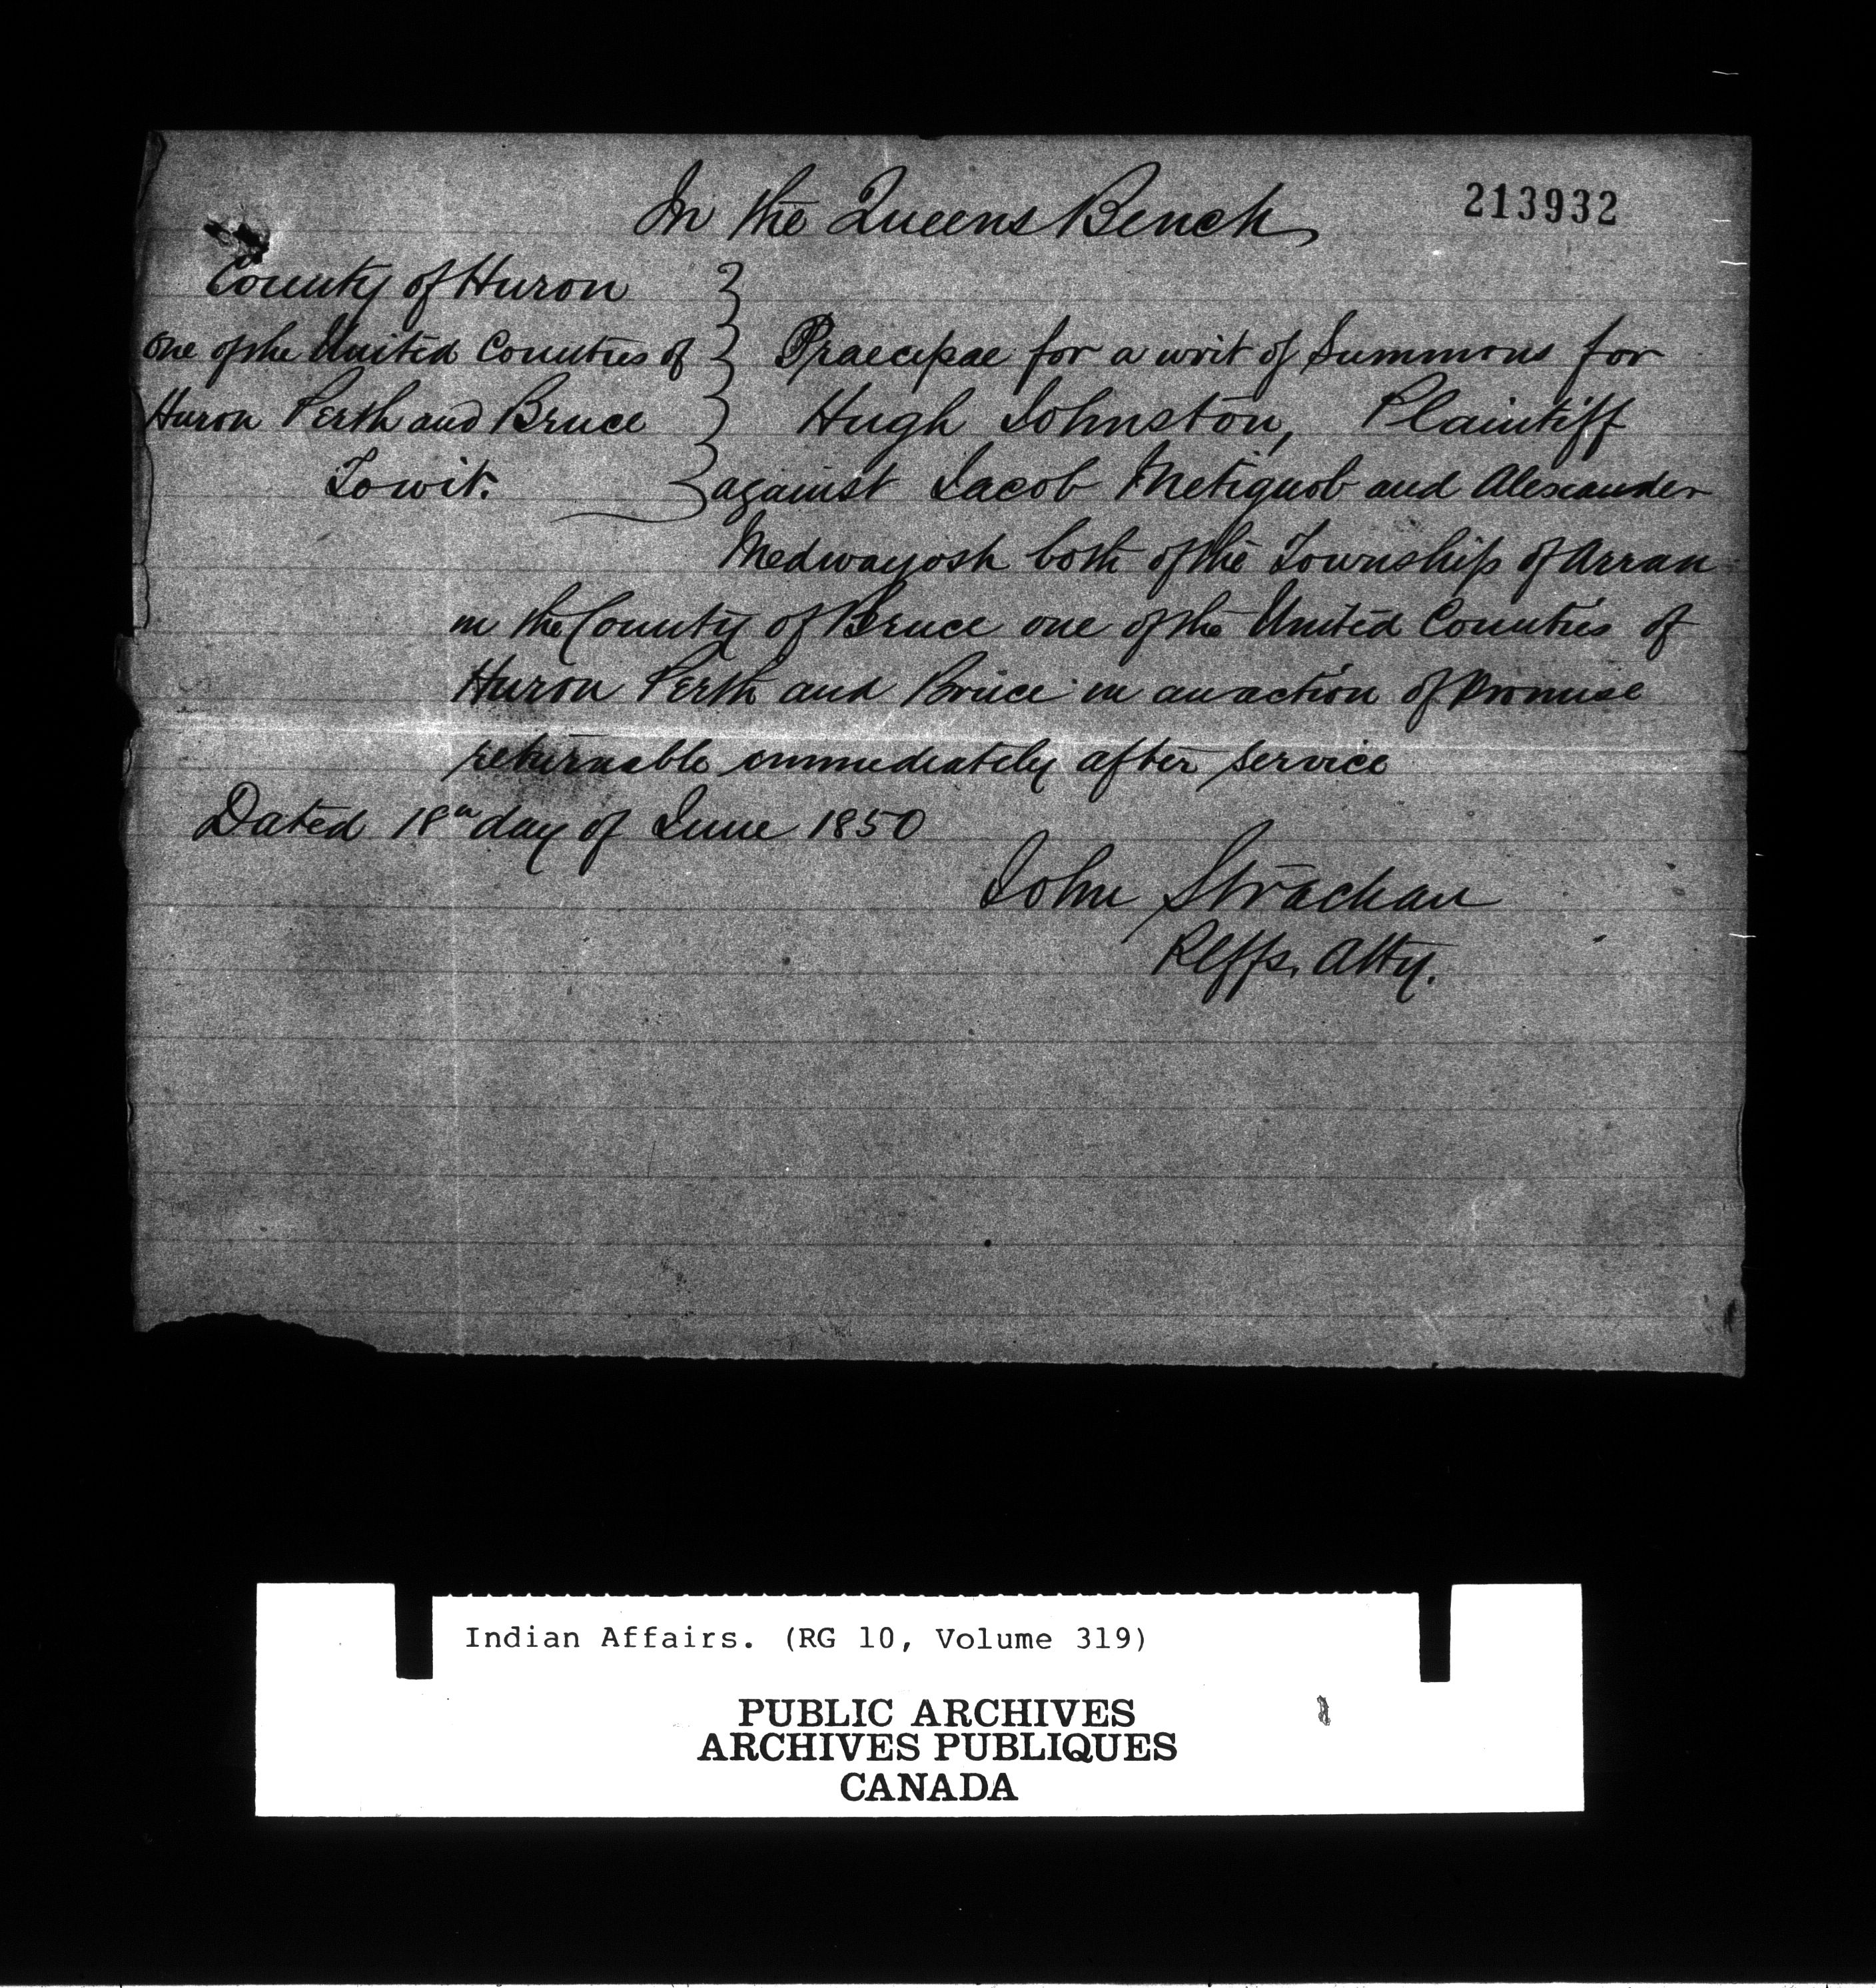 In the Queens Bench
213932
County of Huron
One of the United Counties of
Huron Perth and Bruce
Towit.
Praecipae for a writ of Summons for
Hugh Johnston, Plaintiff
against Jacob Metiguob and Alexander
Medwayosh both of the Township of Arran
in the County of Bruce one of the United Counties of
Huron Perth and Bruce in an action of Promise
returnable immediately after service
Dated 18th day of June 1850
John Strachan
Plffs. Atty.
Indian Affairs. (RG 10, Volume 319)
PUBLIC ARCHIVES
ARCHIVES PUBLIQUES
CANADA